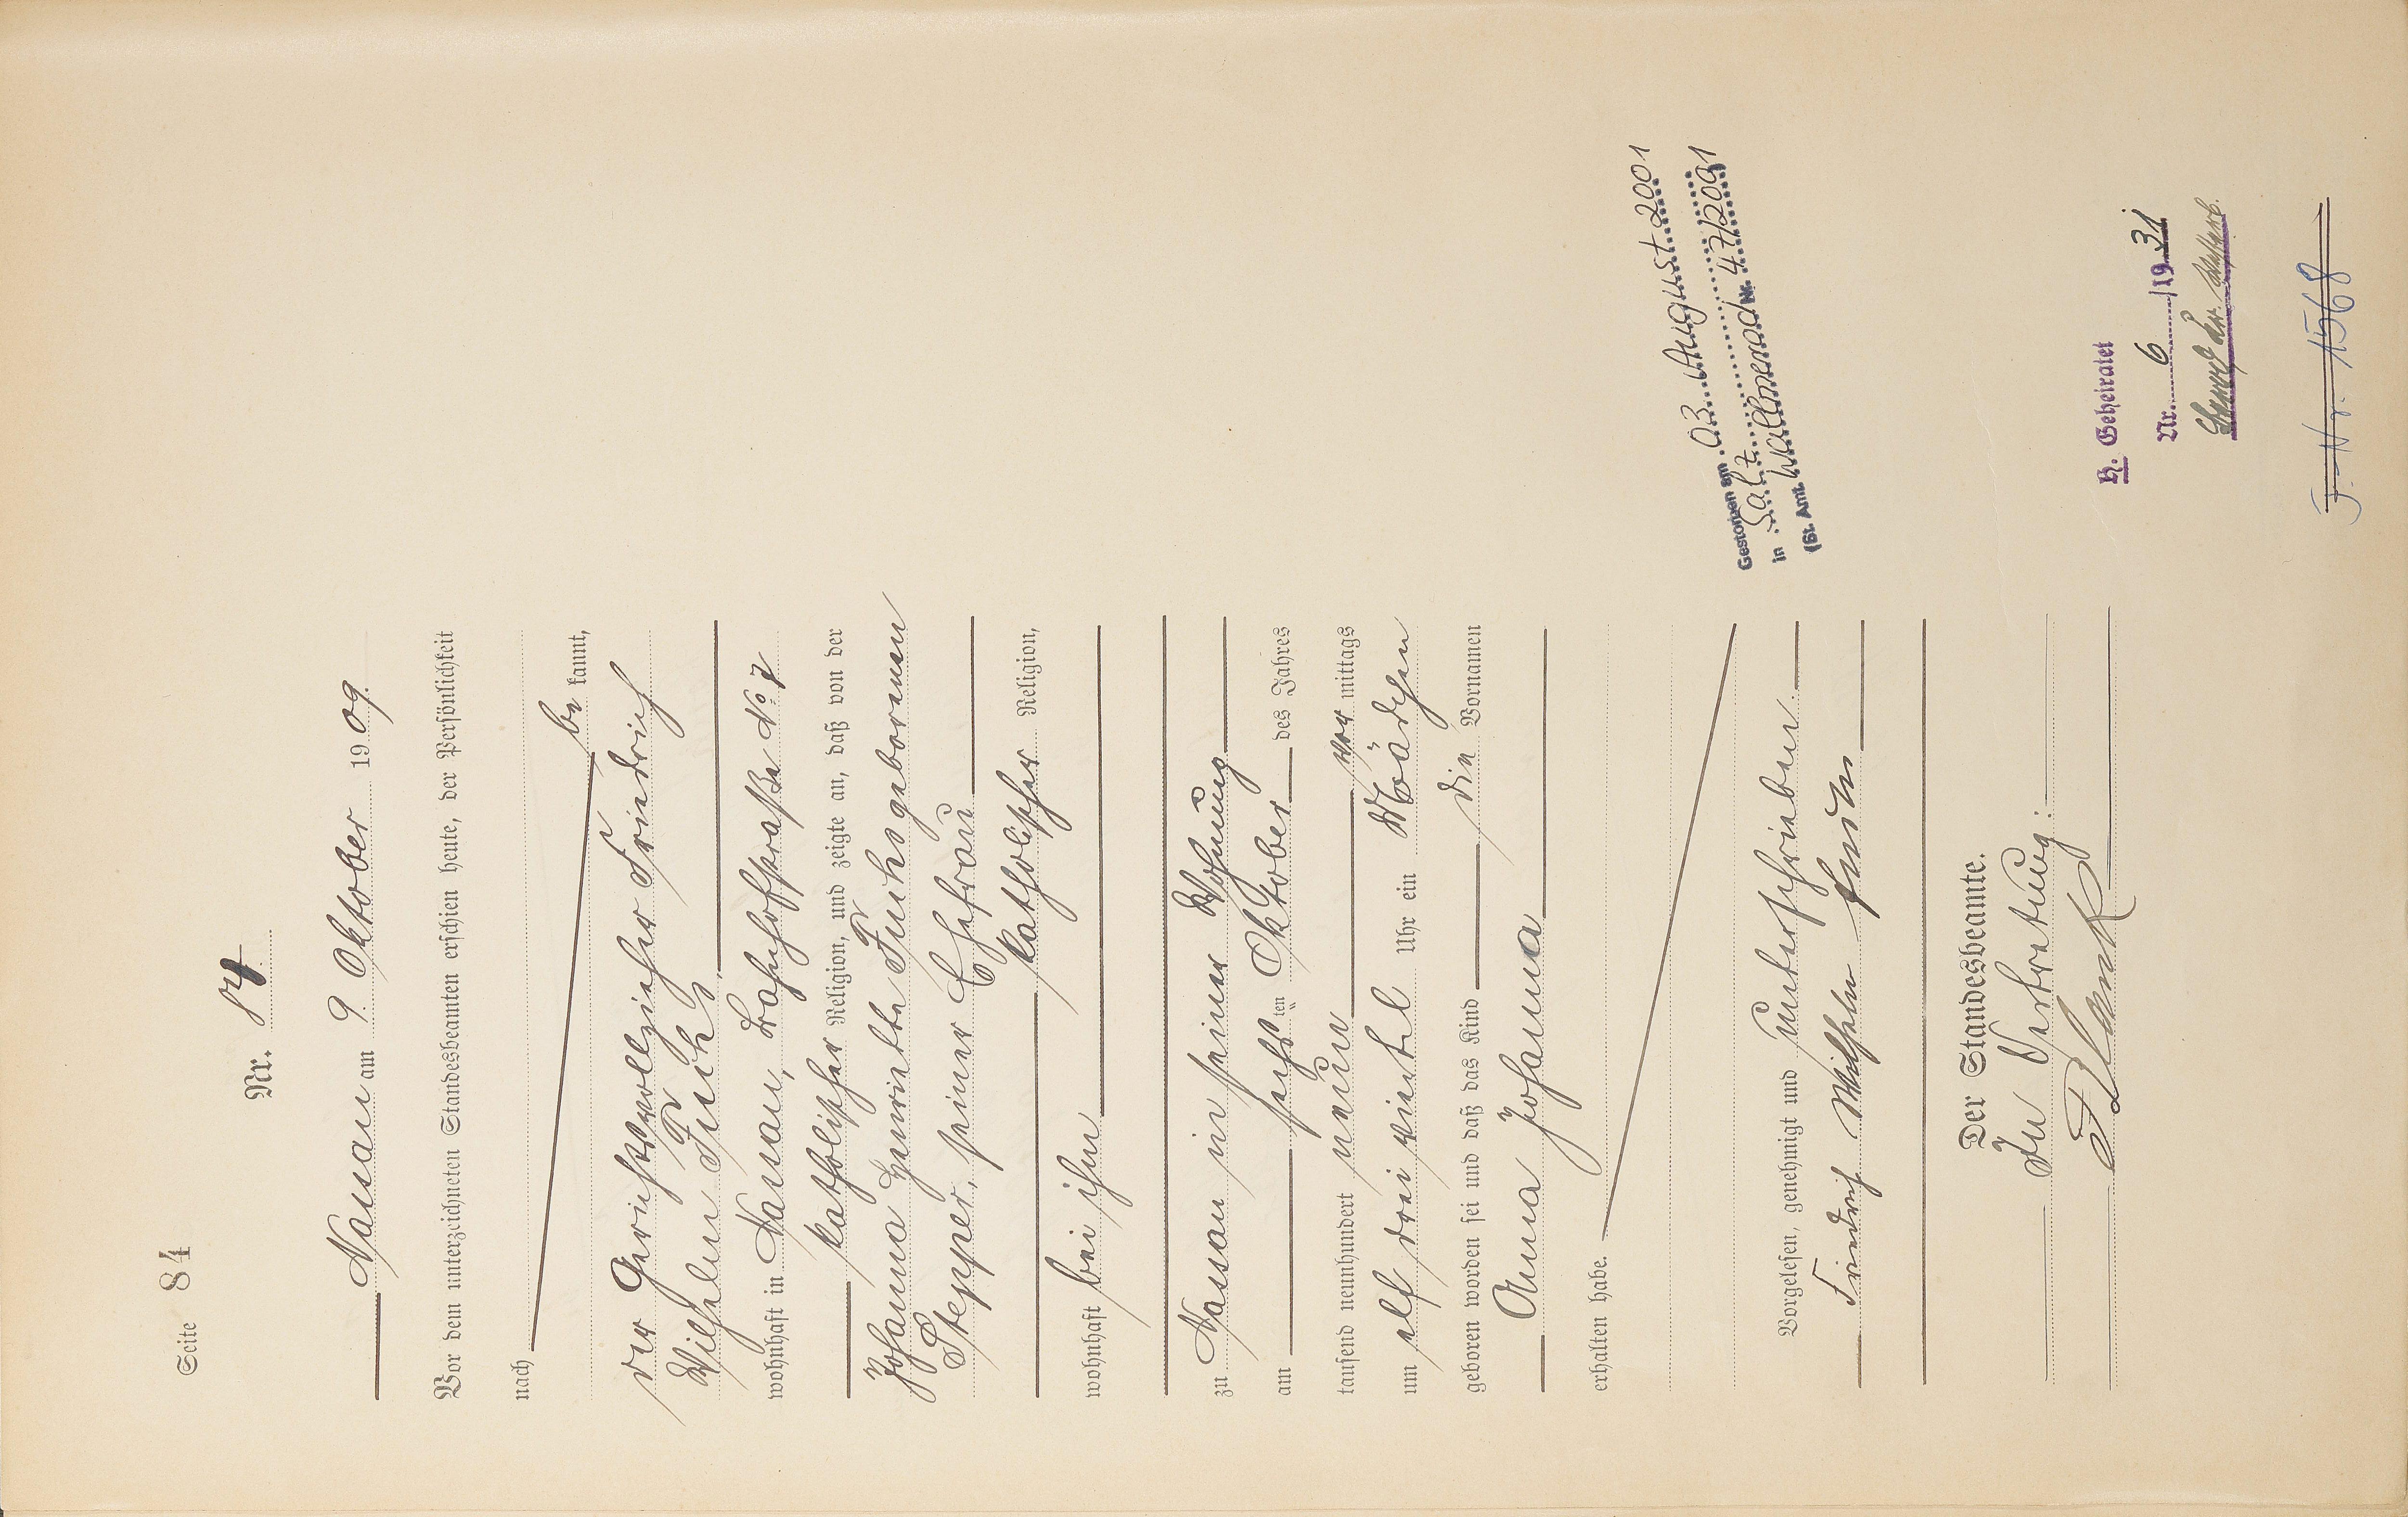 Seite 84
Nr. 84
Nassau am 9. Oktober 1909.
Vor dem unterzeichneten Standesbeamten erschien heute, der Persönlichkeit
nach
be kannt,
der Gerichtsvollzieher Friedrich
Wilhelm Fuchs,
wohnhaft in Nassau, Bahnhofstraße No 7
katholischer Religion, und zeigte an, daß von der
Johanna Henriette Fuchs geborenen
Stepper, seiner Ehefrau
katholischer Religion,
wohnhaft bei ihm
zu Nassau in seiner Wohnung
am sechsten Oktober des Jahres
tausend neunhundert neun vor mittags
um elf drei viertel Uhr ein Mädchen
geboren worden sei und daß das Kind die Vornamen
Anna Johanna
erhalten habe.
Vorgelesen, genehmigt und unterschrieben.
Friedrich Wilhelm Fuchs
Der Standesbeamte.
In Vertretung:
Plank
Gestorben am 03. August 2001
in Salz
(St. Amt. Wallmerod Nr. 47/2001
H. Geheiratet
Nr. 6 /1931
J.-Nr. 1568